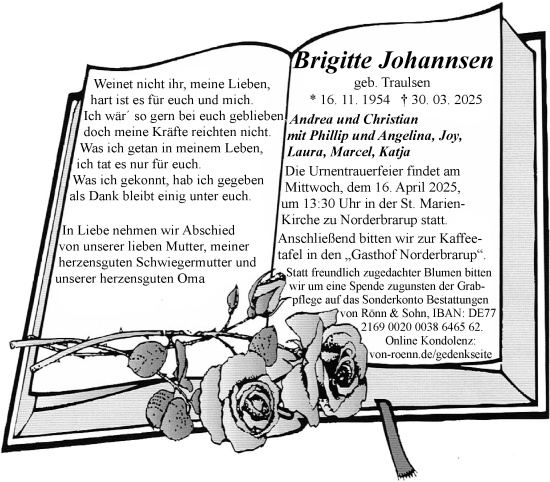 Weinet nicht ihr, meine Lieben,
hart ist es für euch und mich.
Ich wär´ so gern bei euch geblieben,
doch meine Kräfte reichten nicht.
Was ich getan in meinem Leben,
ich tat es nur für euch.
Was ich gekonnt, hab ich gegeben
als Dank bleibt einig unter euch.
In Liebe nehmen wir Abschied
von unserer lieben Mutter, meiner
herzensguten Schwiegermutter und
unserer herzensguten Oma
Brigitte Johannsen
geb. Traulsen
* 16. 11. 1954 † 30. 03. 2025
Andrea und Christian
mit Phillip und Angelina, Joy,
Laura, Marcel, Katja
Die Urnentrauerfeier findet am
Mittwoch, dem 16. April 2025,
um 13:30 Uhr in der St. Marien-
Kirche zu Norderbrarup statt.
Anschließend bitten wir zur Kaffee-
tafel in den „Gasthof Norderbrarup“.
Statt freundlich zugedachter Blumen bitten
wir um eine Spende zugunsten der Grab-
pflege auf das Sonderkonto Bestattungen
von Rönn & Sohn, IBAN: DE77
2169 0020 0038 6465 62.
Online Kondolenz:
von-roenn.de/gedenkseite